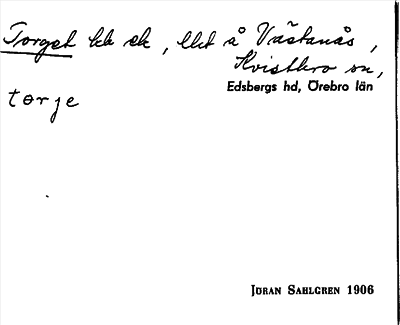 Torget bk ek, llt å Västanås,
Kvistbro sn,
Edsbergs hd, Örebro län
tɵrje
Jöran Sahlgren 1906